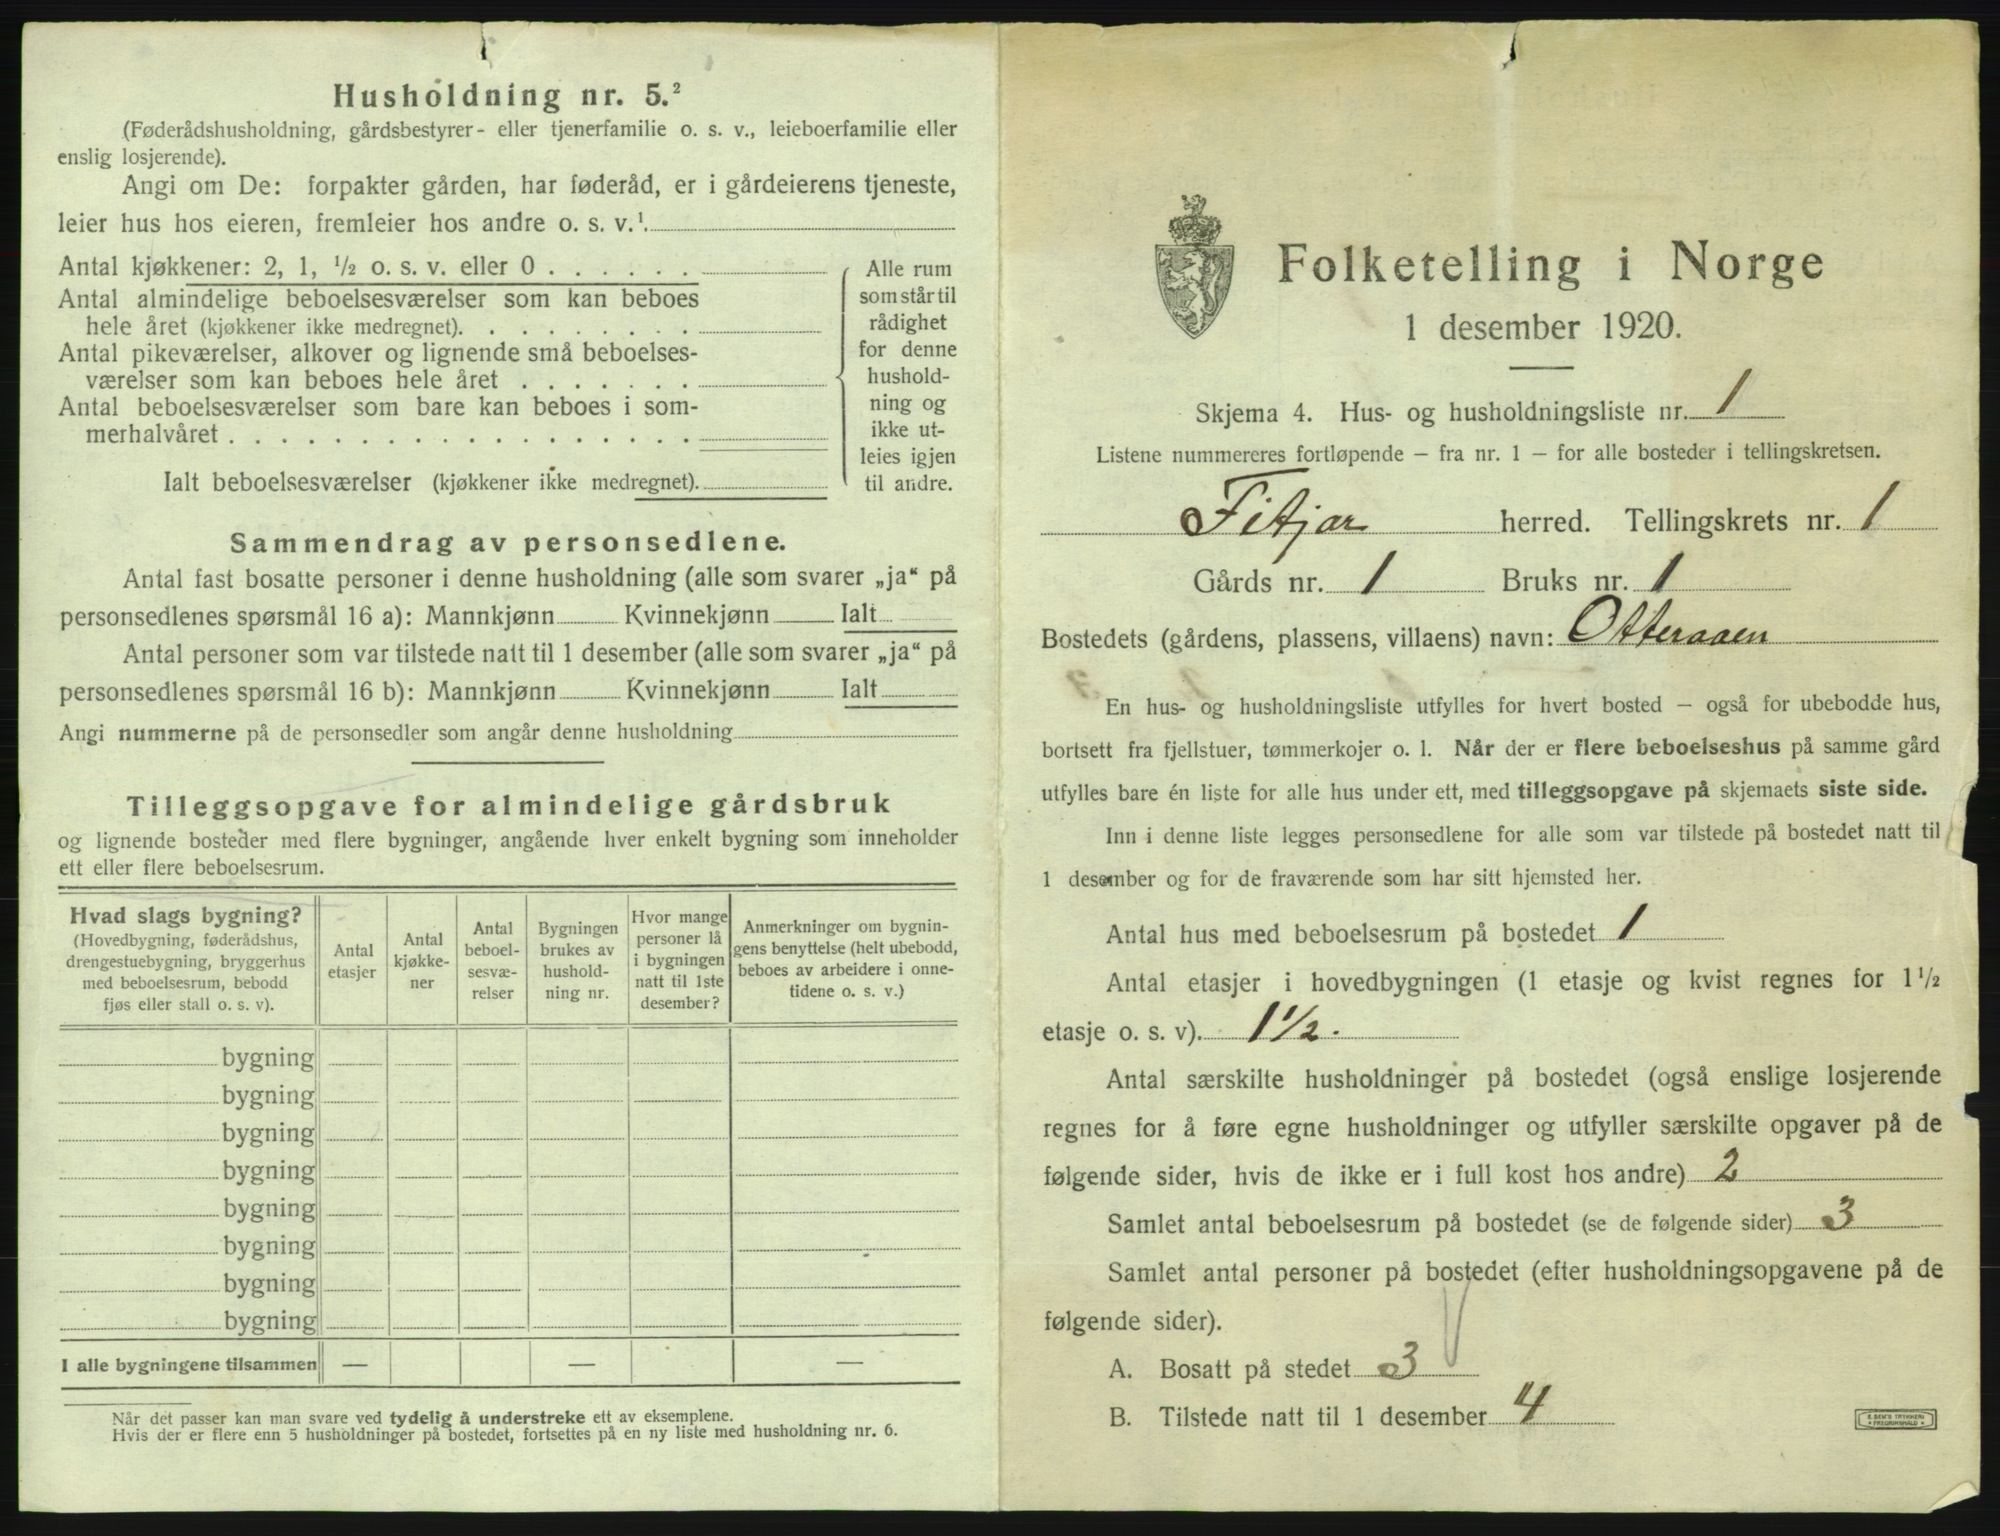 Husholdning nr. 5.²
(Føderådshusholdning, gårdsbestyrer- eller tjenerfamilie o. s. v., leieboerfamilie eller
enslig losjerende).
Angi om De: forpakter gården, har føderåd, er i gårdeierens tjeneste,
leier hus hos eieren, fremleier hos andre o. s. v.¹
Antal kjøkkener: 2, 1, ½ o. s. v. eller 0 . . . . . .
Antal almindelige beboelsesværelser som kan beboes
hele året (kjøkkener ikke medregnet). . . . . . . . .
Antal pikeværelser, alkover og lignende små beboelses-
værelser som kan beboes hele året . . . . . . .
Antal beboelsesværelser som bare kan beboes i som-
merhalvåret . . . . . . . . . . . . . . . . . .
Ialt beboelsesværelser (kjøkkener ikke medregnet).
Alle rum
som står til
rådighet
for denne
hushold-
ning og
ikke ut-
leies igjen
til andre.
Sammendrag av personsedlene.
Antal fast bosatte personer i denne husholdning (alle som svarer „ja“ på
personsedlenes spørsmål 16 a): Mannkjønn Kvinnekjønn Ialt
Antal personer som var tilstede natt til 1 desember (alle som svarer „ja“ på
personsedlenes spørsmål 16 b): Mannkjønn Kvinnekjønn Ialt
Angi nummerne på de personsedler som angår denne husholdning
Tilleggsopgave for almindelige gårdsbruk
og lignende bosteder med flere bygninger, angående hver enkelt bygning som inneholder
ett eller flere beboelsesrum.
Hvad slags bygning?
(Hovedbygning, føderådshus,
drengestuebygning, bryggerhus
med beboelsesrum, bebodd
fjøs eller stall o. s. v).
Antal
etasjer
Antal
kjøkke-
ner
Antal
beboel-
sesvæ-
relser
Bygningen
brukes av
hushold-
ning nr.
Hvor mange
personer lå
i bygningen
natt til 1ste
desember?
Anmerkninger om bygnin-
gens benyttelse (helt ubebodd,
beboes av arbeidere i onne-
tidene o. s. v.)
bygning
bygning
bygning
bygning
bygning
bygning
bygning
bygning
I alle bygningene tilsammen — — —
Når det passer kan man svare ved tydelig å understreke ett av eksemplene.
Hvis der er flere enn 5 husholdninger på bostedet, fortsettes på en ny liste med husholdning nr. 6.
Folketelling i Norge
1 desember 1920.
Skjema 4. Hus- og husholdningsliste nr. 1
Listene nummereres fortløpende — fra nr. 1 — for alle bosteder i tellingskretsen.
Fitjar herred. Tellingskrets nr. 1
Gårds nr. 1 Bruks nr. 1
Bostedets (gårdens, plassens, villaens) navn: Otteraaen
En hus- og husholdningsliste utfylles for hvert bosted — også for ubebodde hus,
bortsett fra fjellstuer, tømmerkojer o. l. Når der er flere beboelseshus på samme gård
utfylles bare én liste for alle hus under ett, med tilleggsopgave på skjemaets siste side.
Inn i denne liste legges personsedlene for alle som var tilstede på bostedet natt til
1 desember og for de fraværende som har sitt hjemsted her.
Antal hus med beboelsesrum på bostedet 1
Antal etasjer i hovedbygningen (1 etasje og kvist regnes for 1½
etasje o. s. v). 1½.
Antal særskilte husholdninger på bostedet (også enslige losjerende
regnes for å føre egne husholdninger og utfyller særskilte opgaver på de
følgende sider, hvis de ikke er i full kost hos andre) 2
Samlet antal beboelsesrum på bostedet (se de følgende sider) 3
Samlet antal personer på bostedet (efter husholdningsopgavene på de
følgende sider).
A. Bosatt på stedet 3
B. Tilstede natt til 1 desember 4
E. SEM'S TRYKKERI
FREDRIKSHALD